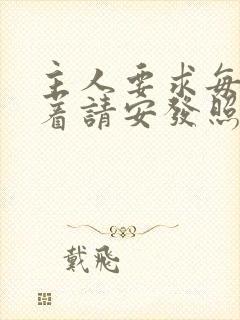 主人要求每
着請安發照
戴飛